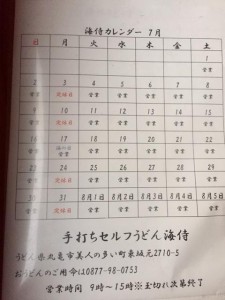 海侍カレンダー 7月
日 月 火 水 木 金 土
1
営業
2 3 4 5 6 7 8
営業 定休日 営業 営業 営業 営業 営業
9 10 11 12 13 14 15
営業 定休日 営業 営業 営業 営業 営業
16 17 18 19 20 21 22
海の日
営業 営業 営業 営業 営業 営業 営業
23 24 25 26 27 28 29
営業 定休日 営業 営業 営業 営業 営業
30 31 8月1日 8月2日 8月3日 8月4日 8月5日
営業 定休日 営業 営業 営業 営業 営業
手打ちセルフうどん海侍
うどん県丸亀市美人の多い町東坂元2710-5
おうどんのご用命は0877-98-0753
営業時間 9時~15時※玉切れ次第終了